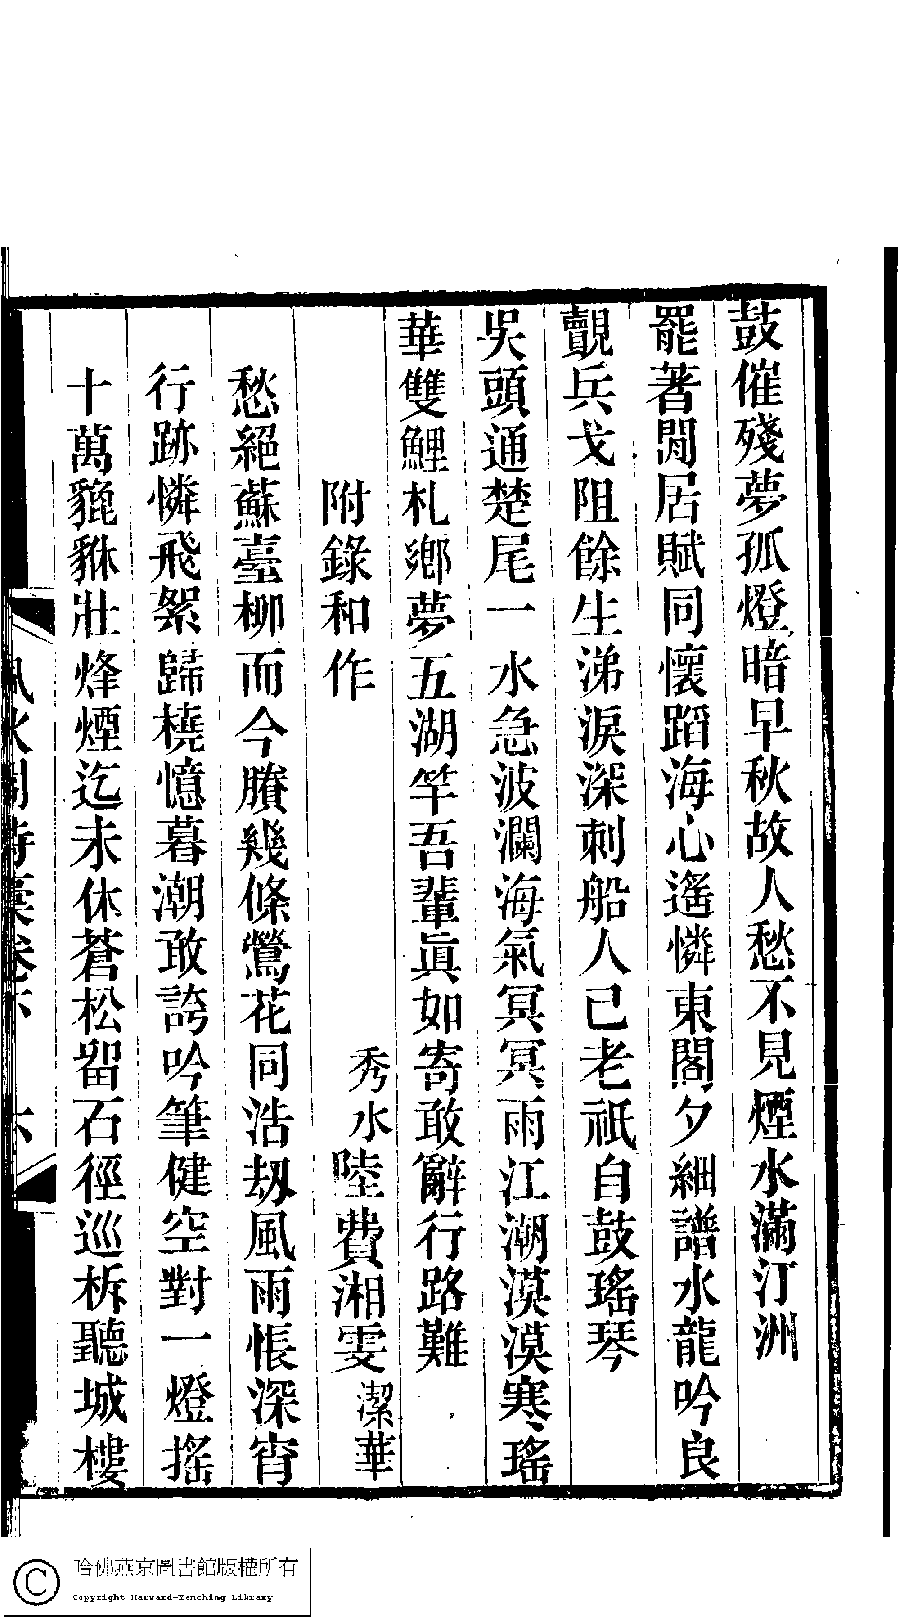 鼓催殘夢孤燈暗早秋故人愁不見煙水滿汀洲
罷著閒居賦同懷蹈海心遙憐東閣夕細譜水龍吟良
覿兵戈阻餘生涕淚深刺船人已老祇自鼓瑤琴
吳頭通楚尾一水急波瀾海氣冥冥雨江潮漠漠寒瑤
華雙鯉札鄉夢五湖竿吾輩眞如寄敢辭行路難
附錄和作
秀水陸費湘雯潔華
愁絕蘇臺柳而今賸幾條鶯花同浩劫風雨悵深宵
行跡憐飛絮歸橈憶暮潮敢誇吟筆健空對一燈搖
十萬貔貅壯烽煙迄未休蒼松留石徑巡柝聽城樓
卷六
六
哈佛燕京圖書館版權所有
Copyright Harvard-Yenching Library